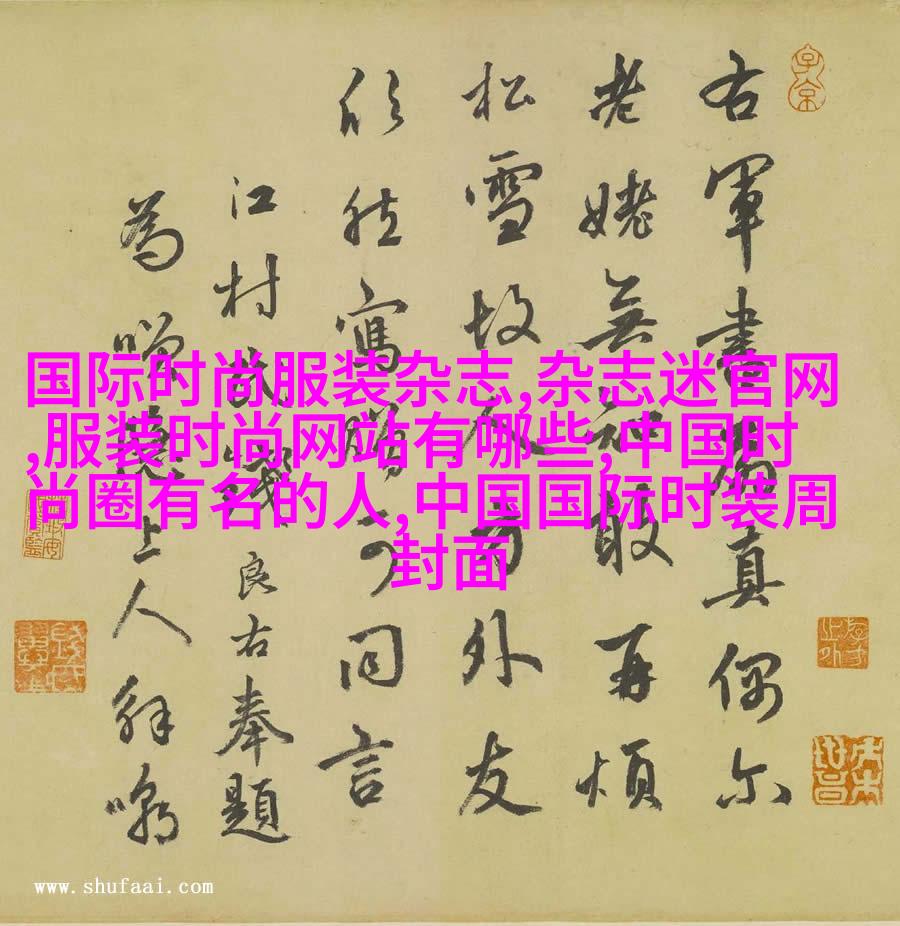 国际时尚服装杂志,杂志迷官网
,服装时尚网站有哪些,中国时
尚圈有名的人,中国国际时装周
封面
右軍書扇真偶尔
老姥無知敢再煩
松雪故人方外友
欣然寫贈可同言
江村民錢良右奉題
為上人解嘲
www.shufaai.com